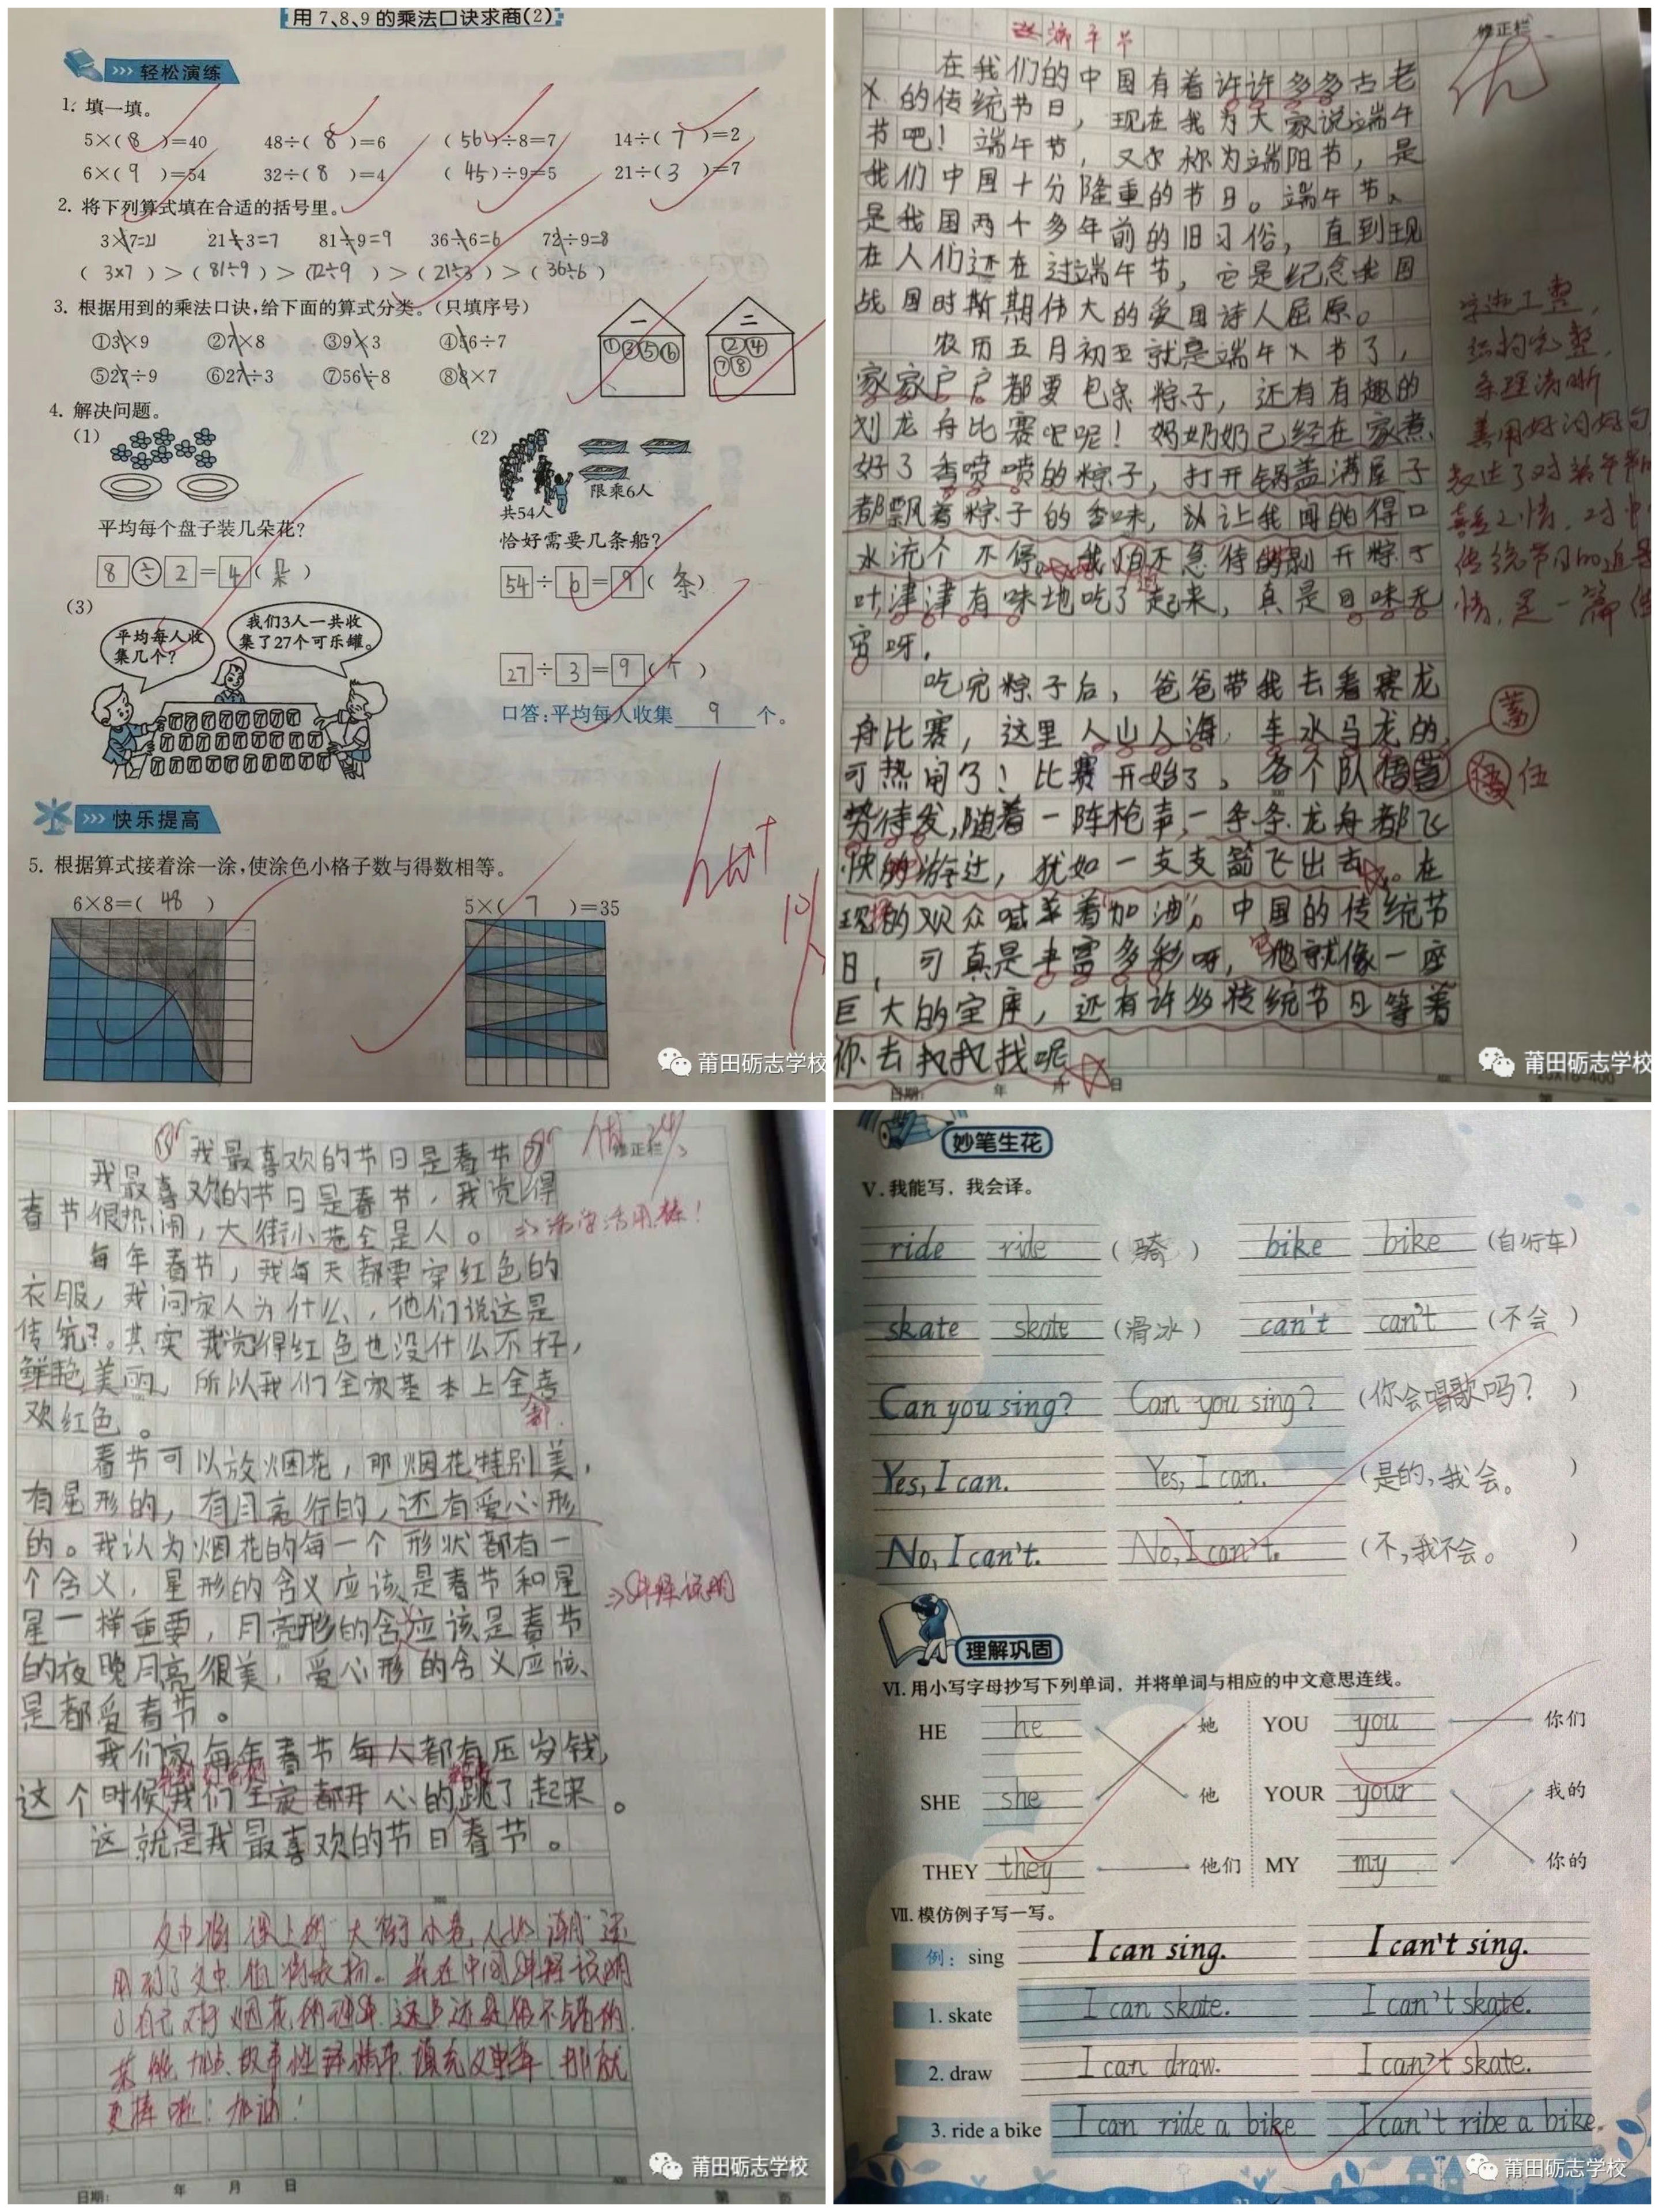 用7、8、9的乘法口诀求商(2)
>>> 轻松演练
1. 填一填。
5×( 8 )=40 48÷( 8 )=6 ( 56 )÷8=7 14÷( 7 )=2
6×( 9 )=54 32÷( 8 )=4 ( 45 )÷9=5 21÷( 3 )=7
2. 将下列算式填在合适的括号里。
3×7=21 21÷3=7 81÷9=9 36÷6=6 72÷9=8
( 3×7 ) > ( 81÷9 ) > ( 72÷9 ) > ( 21÷3 ) > ( 36÷6 )
3. 根据用到的乘法口诀,给下面的算式分类。(只填序号)
①3×9 ②7×8 ③9×3 ④56÷7
⑤27÷9 ⑥27÷3 ⑦56÷8 ⑧8×7
一 二
①③⑤⑥ ②④
⑦⑧
4. 解决问题。
(1) (2)
限乘6人
共54人
平均每个盘子装几朵花? 恰好需要几条船?
8÷2=4(朵) 54÷6=9(条)
(3)
平均每人收集几个?
我们3人一共收集了27个可乐罐。
27÷3=9(个)
口答:平均每人收集 9 个。
>>> 快乐提高
5. 根据算式接着涂一涂,使涂色小格子数与得数相等。
6×8=( 48 ) 5×( 7 )=35
莆田砺志学校
端午节
修正栏
优
在我们的中国有着许许多多古老
的传统节日，现在我为大家说端午
节吧！端午节，又称为端阳节，是
我们中国十分隆重的节日。端午节、
是我国两千多年前的旧习俗，直到现
在人们还在过端午节，它是纪念我国
战国时期伟大的爱国诗人屈原。
农历五月初五就是端午节了，
家家户户都要包粽子，还有有趣的
划龙舟比赛呢！奶奶已经在家煮
好了香喷喷的粽子，打开锅盖满屋子
都飘着粽子的香味，让我闻的得口
水流个不停。我迫不急待的剥开粽子
叶，津津有味地吃了起来，真是回味无
穷呀，
吃完粽子后，爸爸带我去看赛龙
舟比赛，这里人山人海，车水马龙的，
可热闹了！比赛开始了，各个队
蓄
伍
势待发，随着一阵枪声，一条条龙舟都飞
快的游过，犹如一支支箭飞出去。在
现的观众喊着“加油”，中国的传统节
日，可真是丰富多彩呀，他就像一座
巨大的宝库，还有许多传统节日等着
你去找找呢
字迹工整，
结构完整，
条理清晰
善用好词好句
日期: 年 月 日
莆田砺志学校
我最喜欢的节日是春节
修正栏
我最喜欢的节日是春节，我觉得
春节很热闹，大街小巷全是人。
=>活学活用 棒！
每年春节，我每天都要穿红色的
衣服，我问家人为什么，他们说这是
传统?。其实我觉得红色也没什么不好，
鲜艳美丽，所以我们全家基本上全喜
欢红色。
春节可以放烟花，那烟花特别美，
有星形的，有月亮行的，还有爱心形
的。我认为烟花的每一个形状都有一
个含义，星形的含义应该是春节和星
=>解释说明
星一样重要，月亮形的含应该是春节
的夜晚月亮很美，爱心形的含义应该
是都爱春节。
我们家每年春节每人都有压岁钱，
这个时候我们全家都开心的跳了起来。
这就是我最喜欢的节日春节。
日期: 年 月 日
莆田砺志学校
妙笔生花
Ⅴ.我能写，我会译。
ride ride (骑) bike bike (自行车)
skate skate (滑冰) can't can't (不会)
Can you sing? Can you sing? (你会唱歌吗?)
Yes, I can. Yes, I can. (是的,我会。)
No, I can't. No, I can't. (不,我不会。)
理解巩固
Ⅵ.用小写字母抄写下列单词，并将单词与相应的中文意思连线。
HE he 她 YOU you 你们
SHE she 他 YOUR your 我的
THEY they 他们 MY my 你的
Ⅶ.模仿例子写一写。
例: sing I can sing. I can't sing.
1. skate I can skate. I can't skate.
2. draw I can draw. I can't skate.
3. ride a bike I can ride a bike I can't ribe a bike.
莆田砺志学校